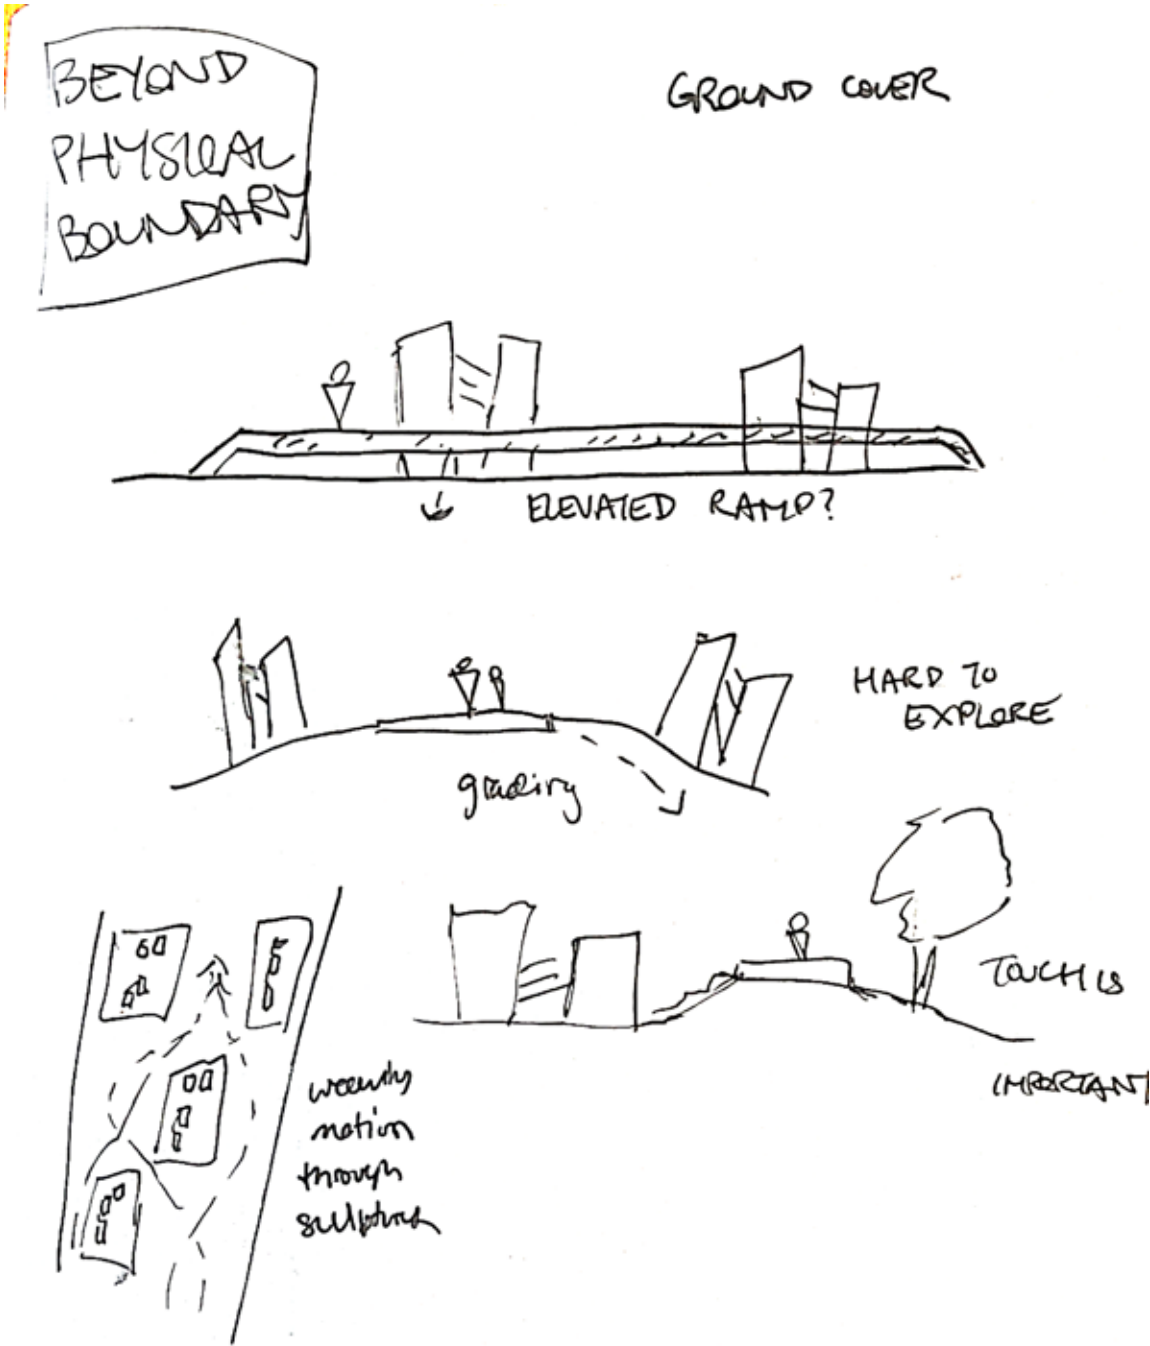 BEYOND
PHYSICAL
BOUNDARY
GROUND COVER
ELEVATED RAMP?
HARD TO
EXPLORE
grading
TOUCH IS
IMPORTANT
motion
through